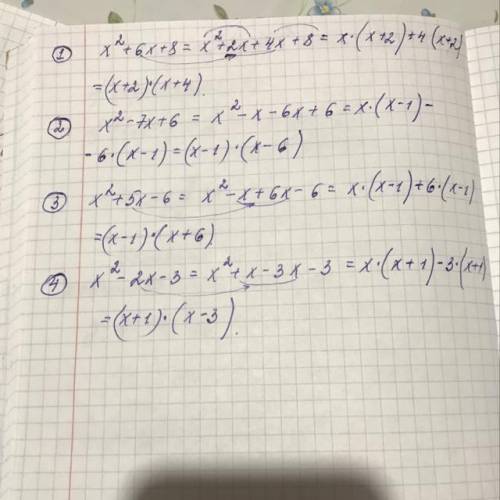 ① x²+6x+8 = x²+2x+4x+8 = x·(x+2)+4(x+2)
=(x+2)·(x+4).
② x²-7x+6 = x²-x-6x+6 = x·(x-1)-
-6·(x-1)=(x-1)·(x-6)
③ x²+5x-6 = x²-x+6x-6 = x·(x-1)+6·(x-1)
=(x-1)·(x+6).
④ x²-2x-3 = x²+x-3x-3 = x·(x+1)-3·(x+1)
=(x+1)·(x-3).